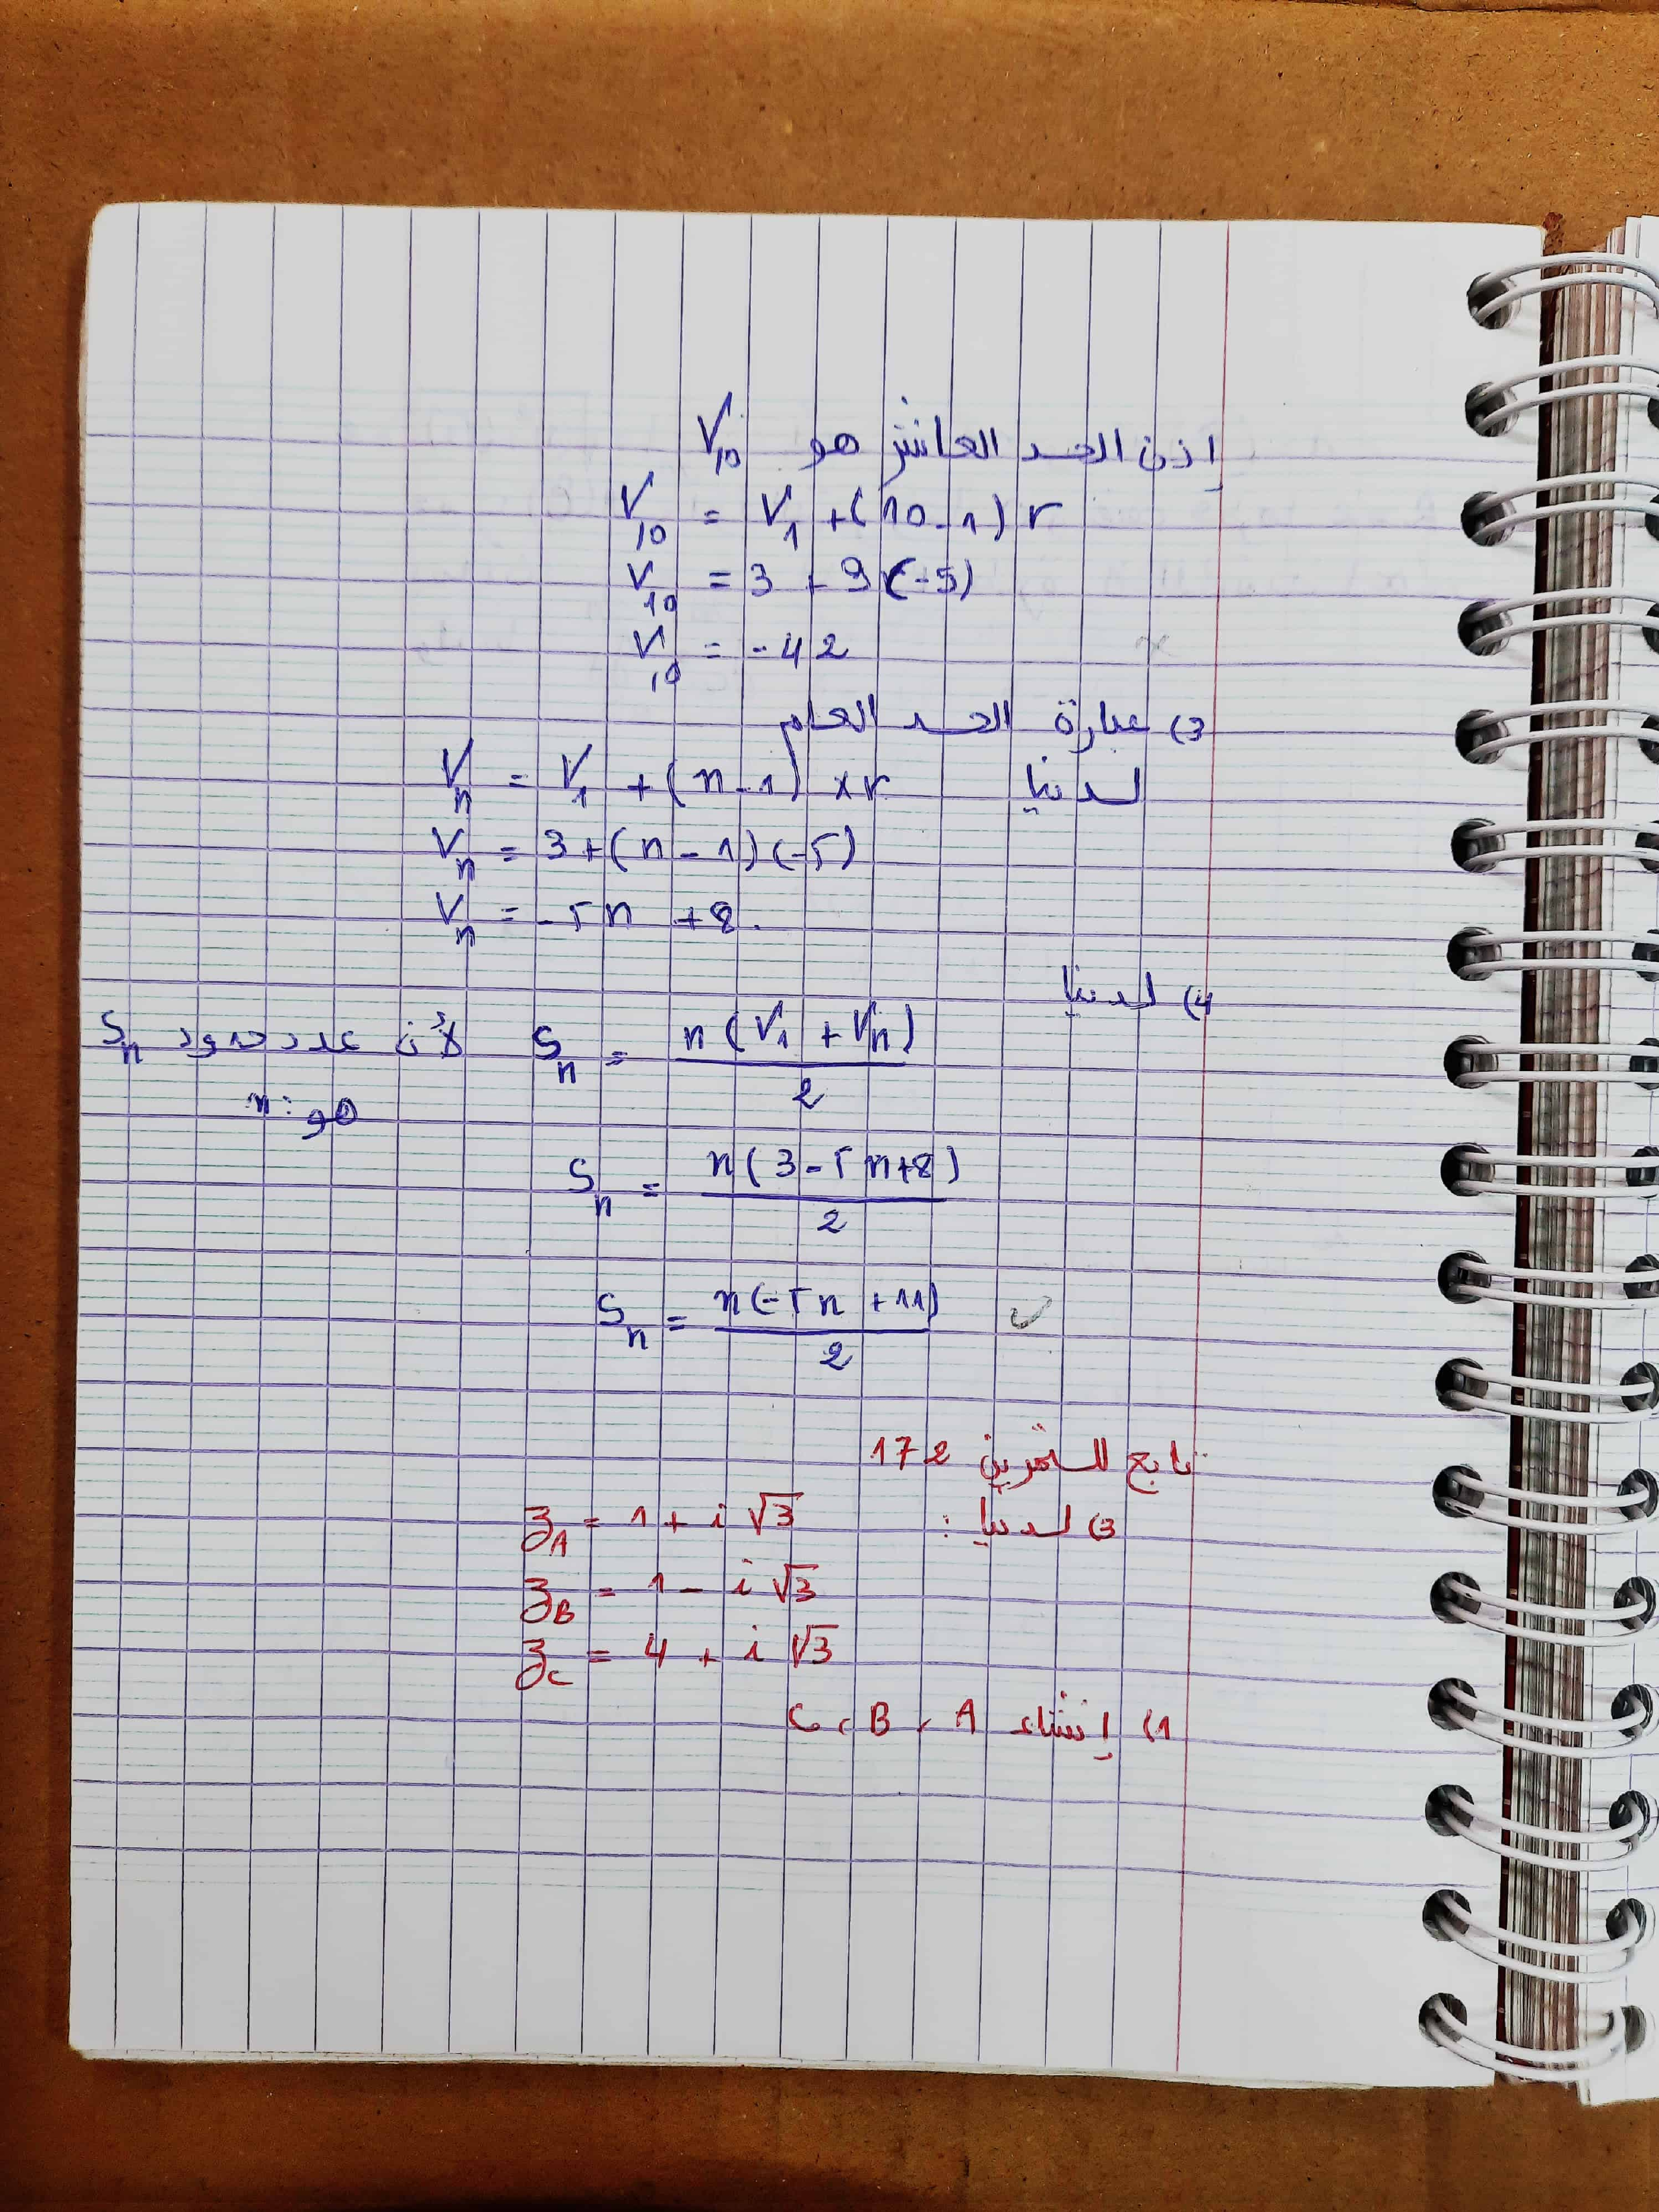 إذن الحد العاشر هو V₁₀
V₁₀ = V₁ + (10-1) r
V₁₀ = 3 + 9(-5)
V₁₀ = -42
3) عبارة الحد العام
لدينا Vₙ = V₁ + (n-1) × r
Vₙ = 3+(n-1)(-5)
Vₙ = -5n +8.
4) لدينا
Sₙ = n(V₁ + Vₙ)/2 لأن عدد حدود Sₙ
هو: n
Sₙ = n(3-5n+8)/2
Sₙ = n(-5n +11)/2 ✓
تابع للتمرين 172
3) لدينا: z_A = 1 + i √3
z_B = 1 - i √3
z_C = 4 + i √3
1) إنشاء A، B، C